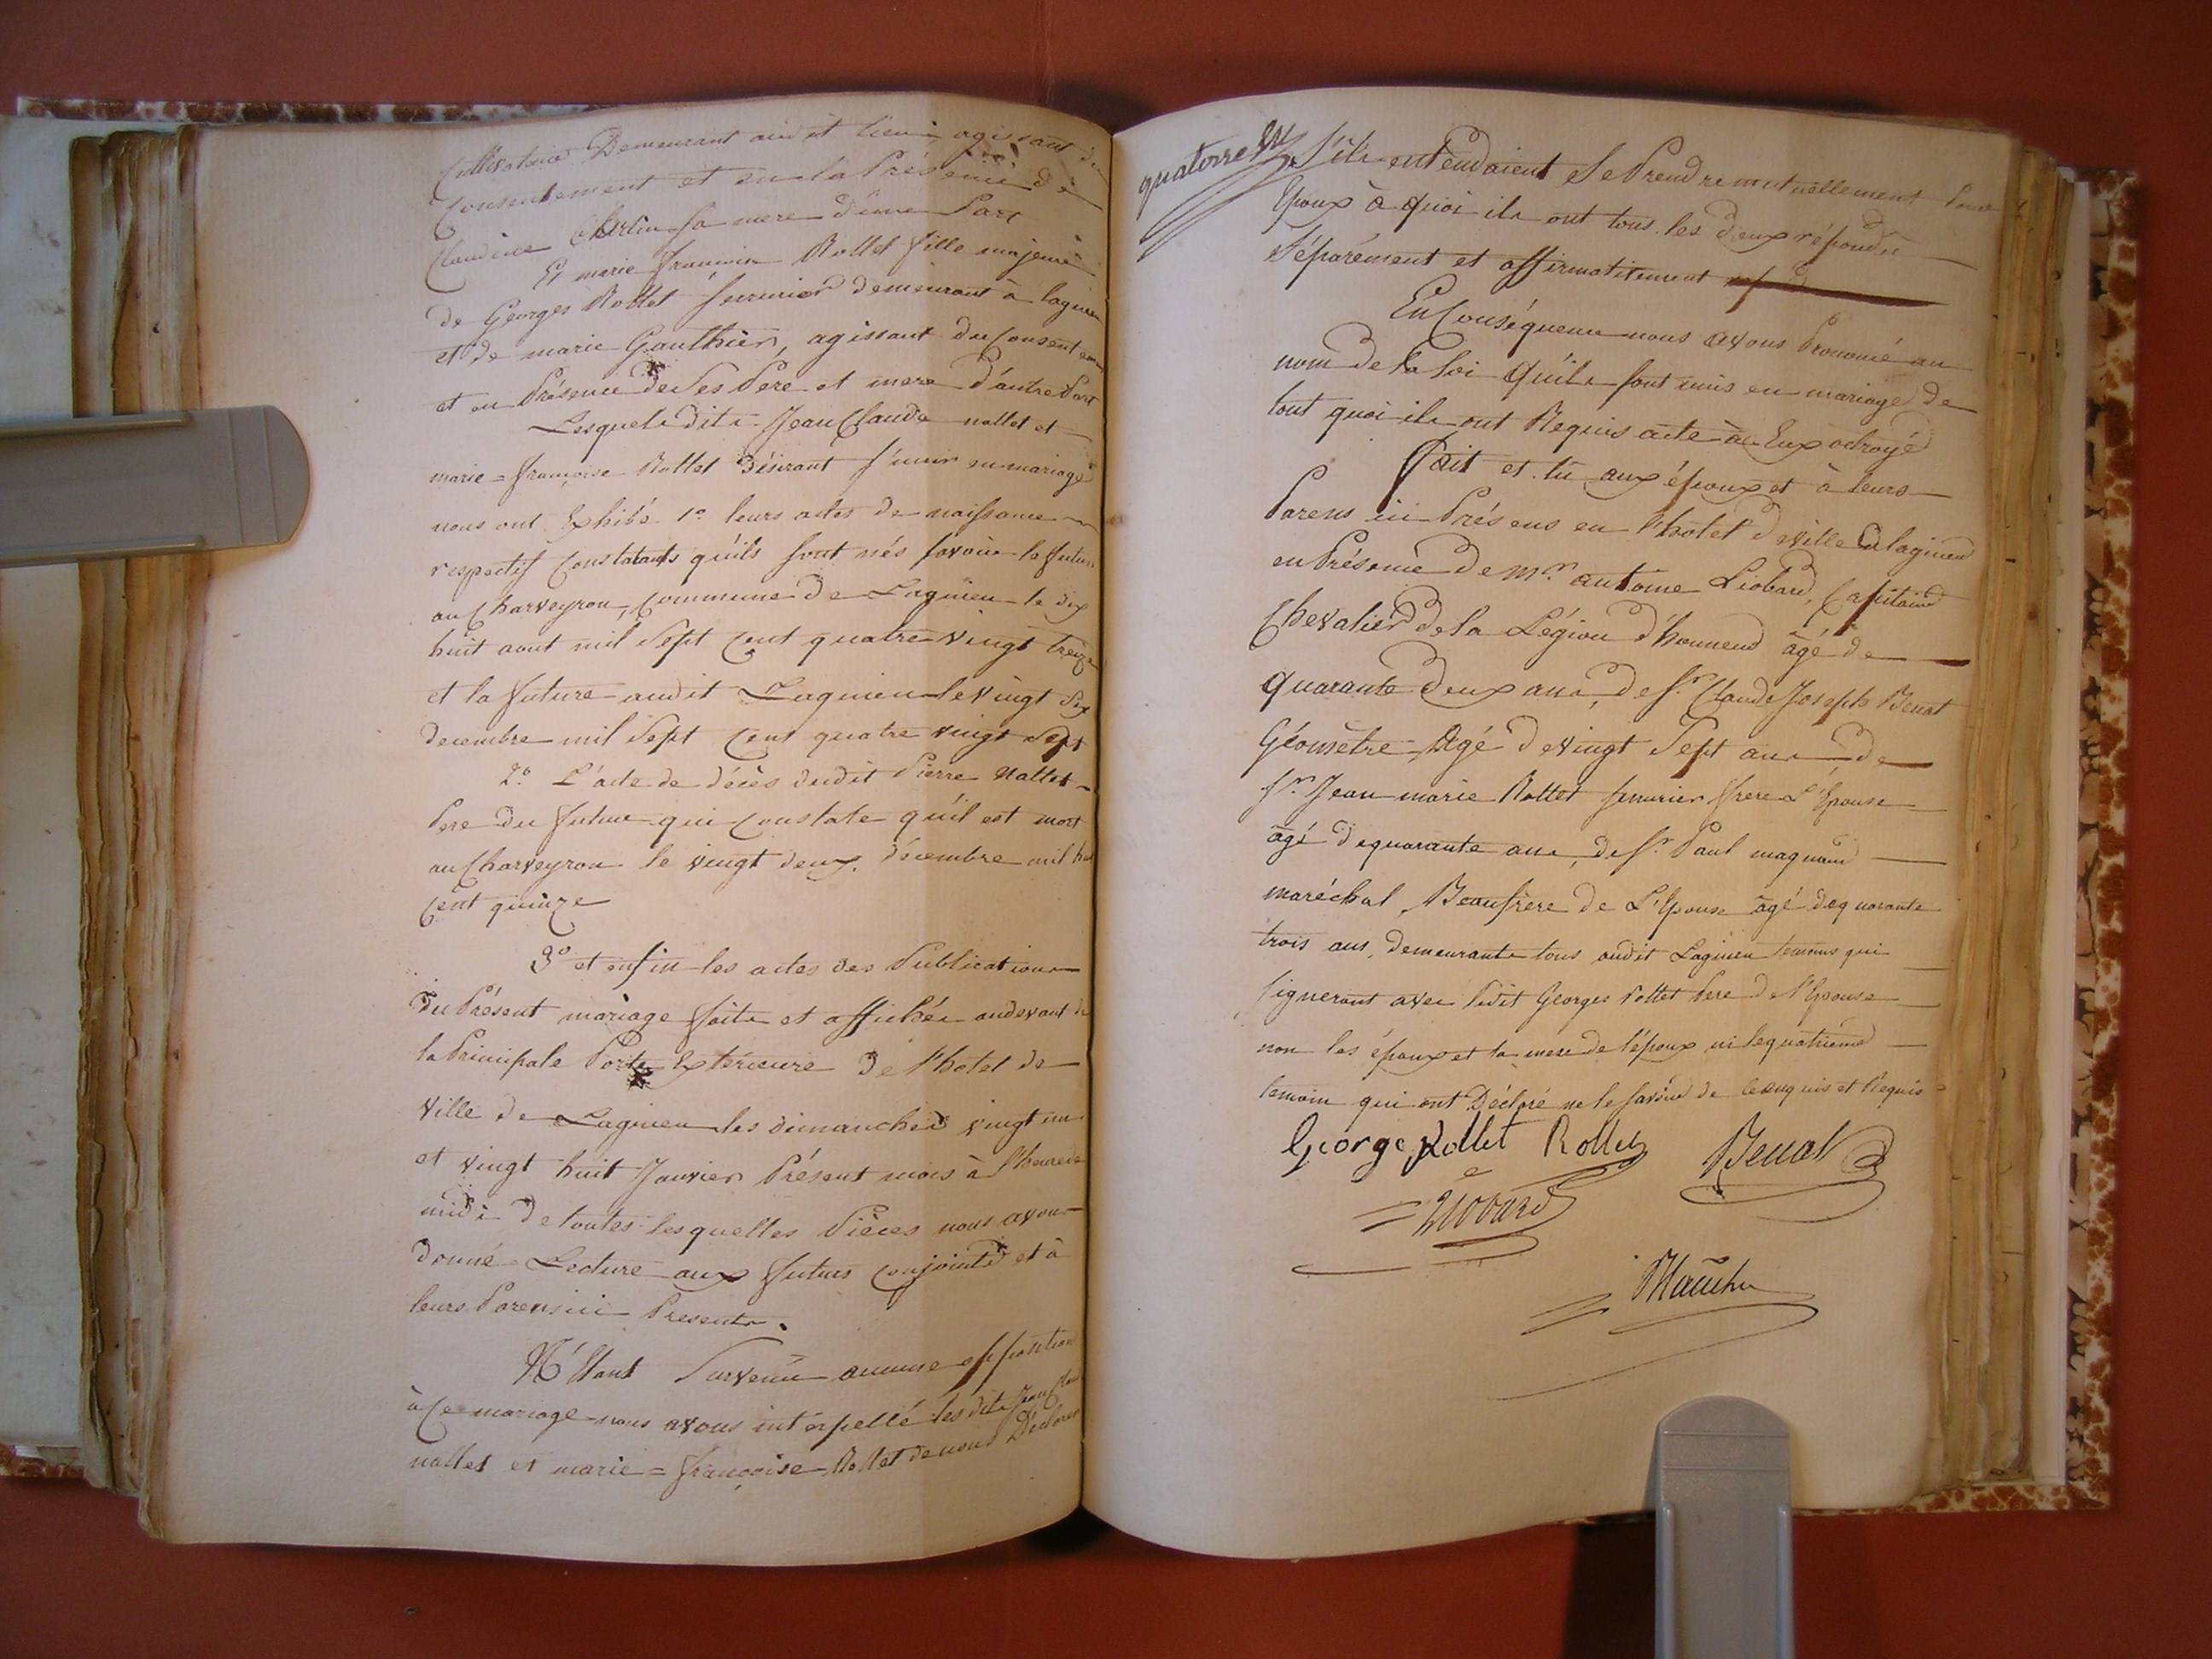 Cultivatrice Demeurant audit lieu, agissant du
Consentement et en la Présence de
Claudine sa mere d'une Part
Et marie françoise Rollet fille majeure
de Georges Rollet serrurier demeurant à lagnieu
et de marie Gauthier, agissant du Consentement
et en Présence de ses Pere et mere d'autre Part
Lesquels dits Jean Claude nallet et
marie = françoise Rollet Désirant s'unir en mariage
nous ont Exhibé 1o leurs actes de naissance
respectif Constatants qu'ils sont nés savoir le futur
au Charveyron, Commune de Lagnieu le dix
huit aout mil Sept Cent quatre vingt treize
et la future audit Lagnieu le vingt Six
decembre mil Sept Cent quatre vingt Sept
2o L'acte de décès dudit Pierre Nallet
Pere du futur qui Constate qu'il est mort
au Charveyron le vingt deux décembre mil huit
Cent quinze
3o et enfin les actes des Publications
du Présent mariage faits et affichés audevant de
la Principale Porte Extérieure De l'hotel de
Ville de Lagnieu les dimanches vingt un
et vingt huit Janvier Présent mois à l'heure de
midi de toutes lesquelles Pièces nous avons
donné Lecture aux futurs conjoints et à
leurs Parens ici Presents.
N'Etant Survenu aucune opposition
à Ce mariage nous avons interpellé les dits Jean Claude
nallet et marie = françoise Rollet de nous Déclarer
quatorze
S'ils entendaient Se Prendre mutuellement Pour
Epoux à quoi ils ont tous les deux répondu
Séparément et affirmativement
En Conséquence nous avons Prononcé au
nom de la loi qu'ils sont unis en mariage de
tout quoi ils ont Requis acte à Eux octroyé
Fait et lu aux époux et à leurs
Parens ici Présens en l'hotel de ville à lagnieu
en Présence de Mr. antoine Liobard, Capitaine
Chevalier de la Légion d'honneur âgé de
quarante Deux ans, de Sr. Claude Joseph Benat
Géomètre Agé de vingt Sept ans, de
Sr. Jean marie Rollet serrurier frere L'Epouse
âgé de quarante ans, de Sr. Paul magnand
maréchal, Beaufrère de L'Epouse âgé de quarante
trois ans, demeurants tous audit Lagnieu temoins qui
signeront avec ledit Georges Rollet Pere de l'Epouse
non les époux et la mere de l'époux ni le quatrième
temoin qui ont Déclaré ne le savoir de ce enquis et Requis =
George Rollet Rollet Benat
Liobard